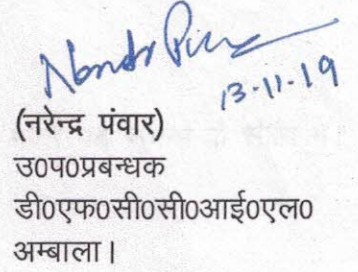 13-11-19
(नरेन्द्र पंवार)
उ०प०प्रबन्धक
डी०एफ०सी०सी०आई०एल०
अम्बाला।